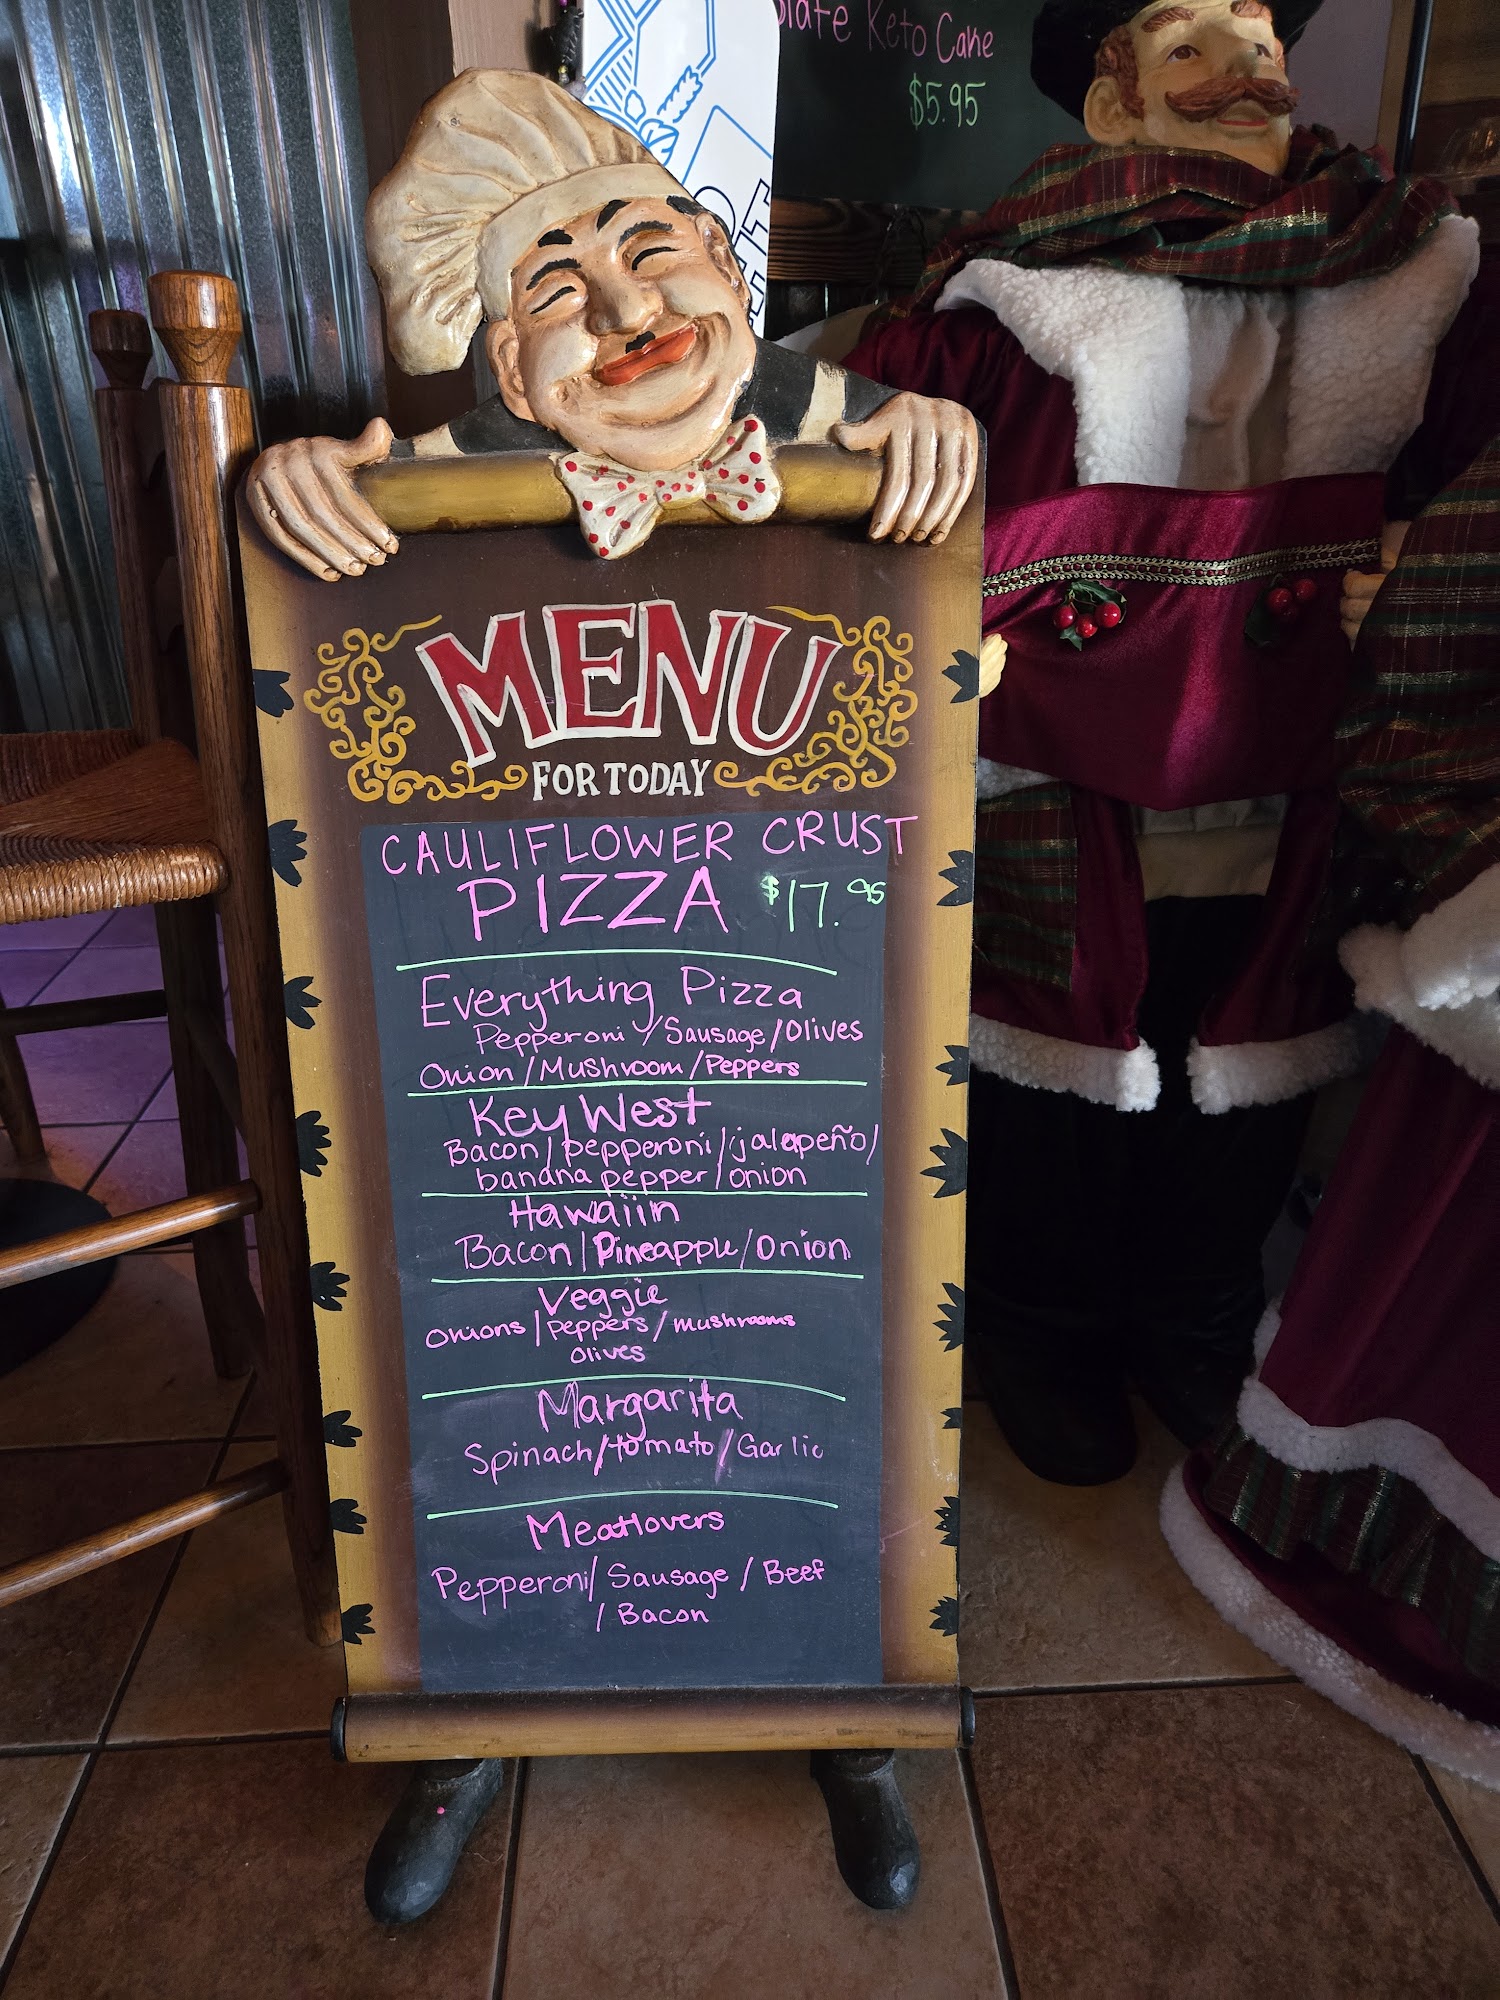 Keto Cake
$5.95
MENU
FOR TODAY
CAULIFLOWER CRUST
PIZZA $17.95
Everything Pizza
Pepperoni / Sausage / Olives
Onion / Mushroom / Peppers
Key West
Bacon / pepperoni / jalapeño /
banana pepper / onion
Hawaiin
Bacon / Pineapple / Onion
Veggie
Onions / Peppers / mushrooms
Olives
Margarita
Spinach / tomato / Garlic
Meatlovers
Pepperoni / Sausage / Beef
/ Bacon